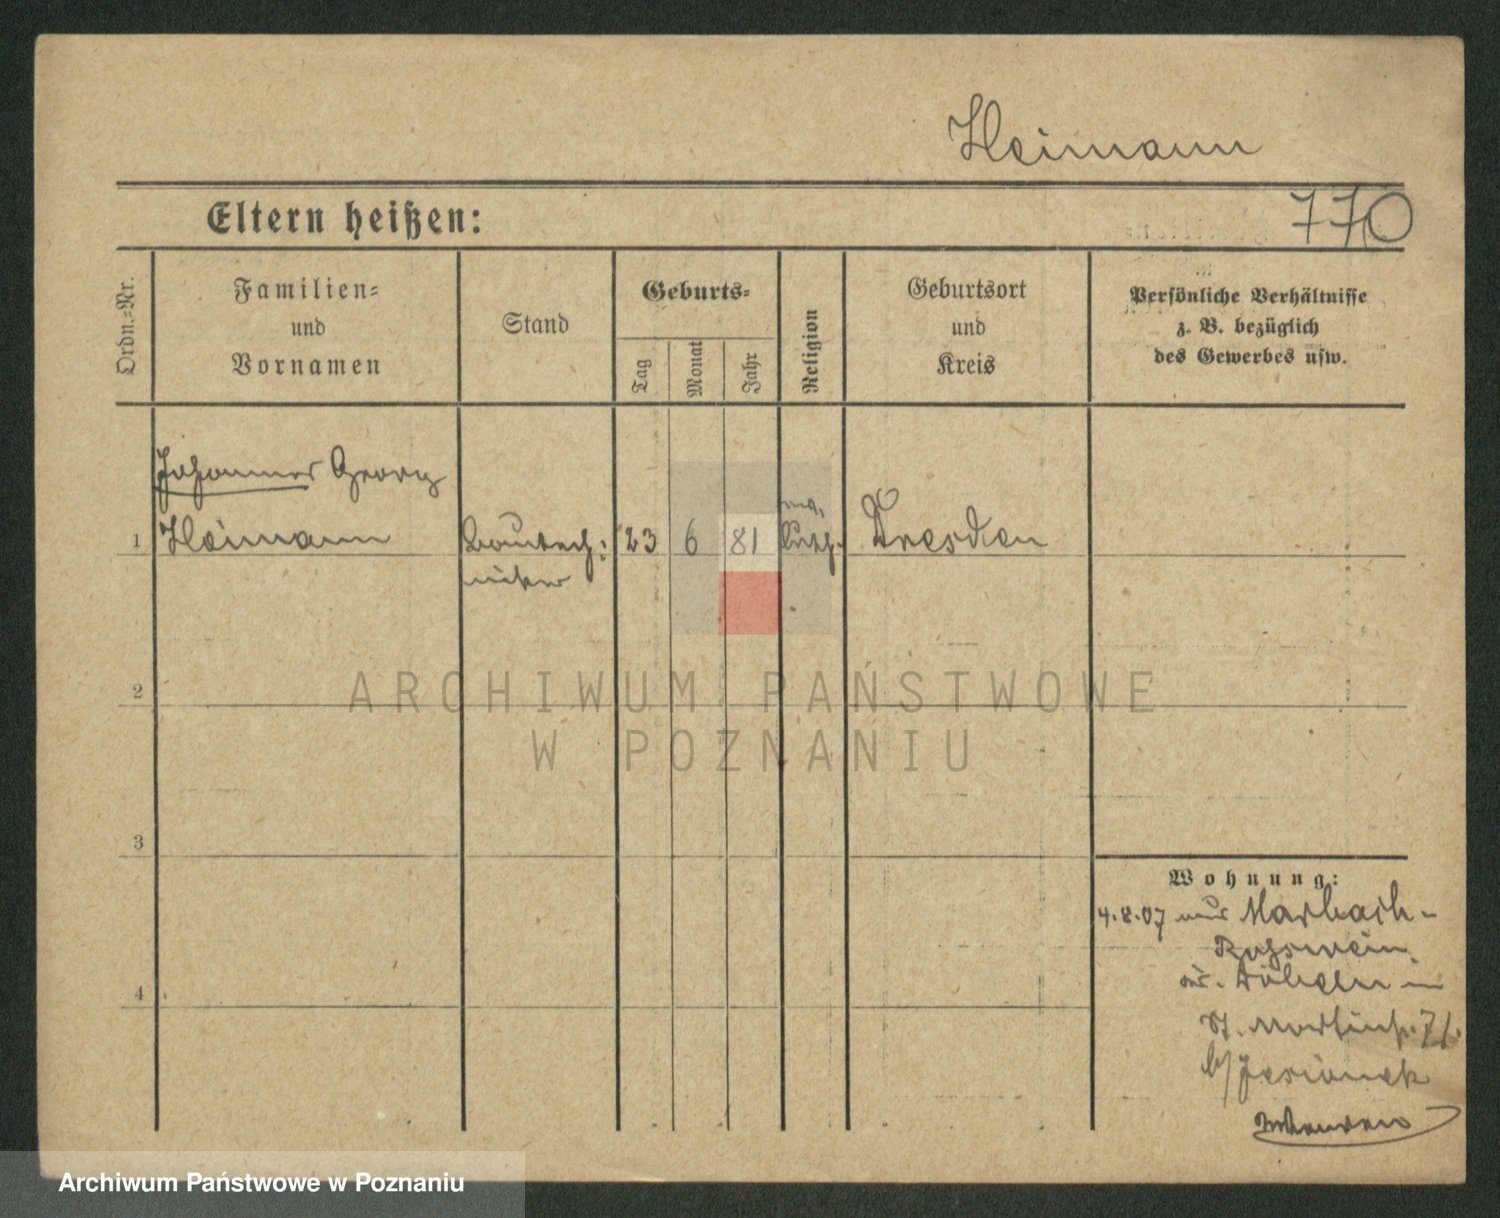 Heimann
Eltern heißen:
770
Ordn.=Nr.
Familien=
und
Vornamen
Stand
Geburts=
Tag
Monat
Jahr
Religion
Geburtsort
und
Kreis
Persönliche Verhältnisse
z. B. bezüglich
des Gewerbes usw.
Johannes Georg
1 Heimann Bautech= 23 6 81 ev. Luth. Dresden
niker
2
ARCHIWUM PAŃSTWOWE
W POZNANIU
3
Wohnung:
4.8.07 aus Marbach-
Roßwein
Döbeln in
4
St. Martinstr. 71.
b/ Jesionek
Archiwum Państwowe w Poznaniu